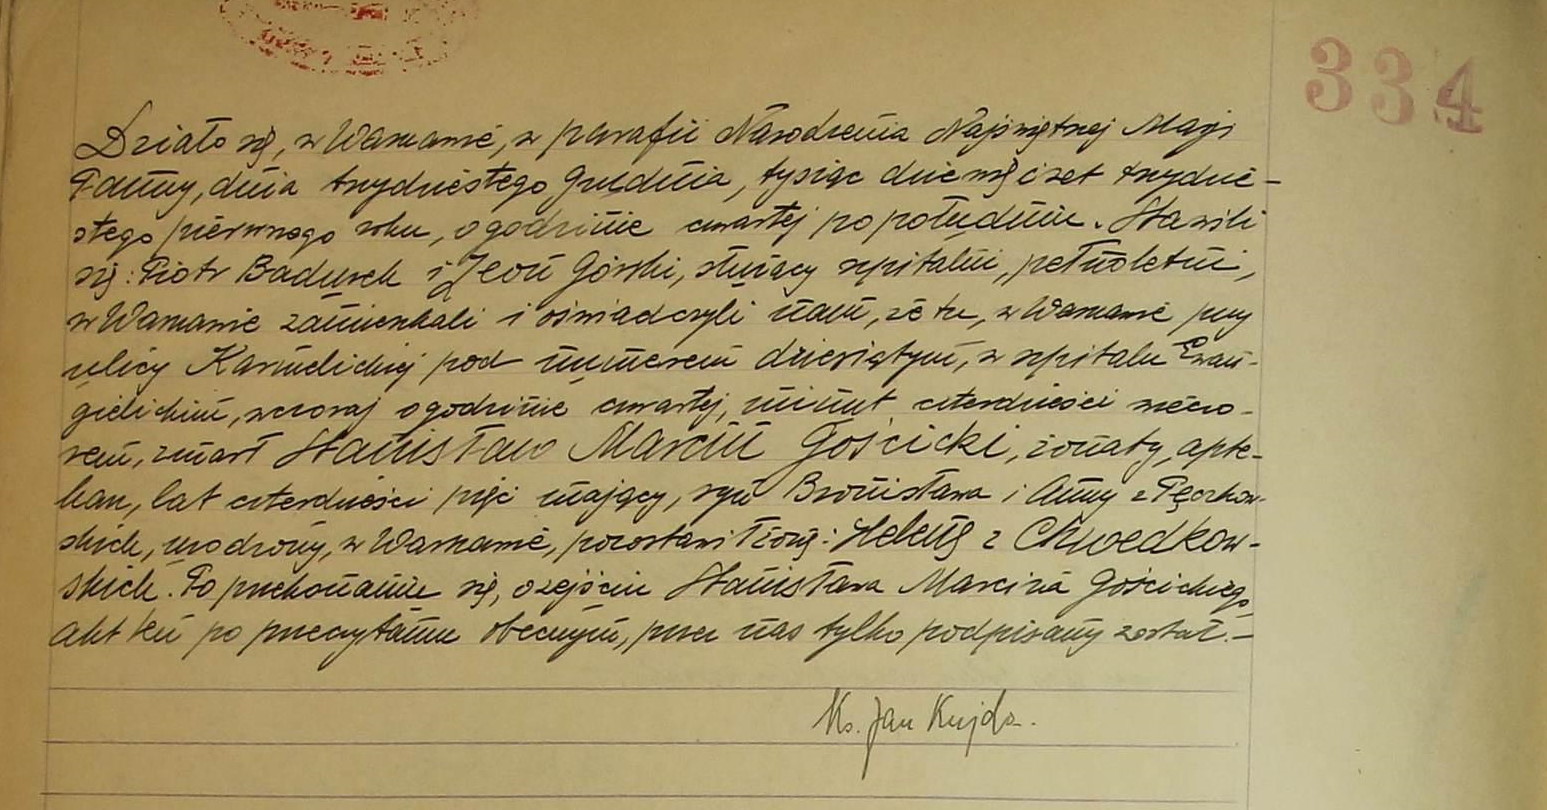 334
Działo się, w Warszawie, w parafii Narodzenia Najświętszej Maryi
Panny, dnia trzydziestego grudnia, tysiąc dziewięćset trzydzie-
stego pierwszego roku, o godzinie czwartej po południu. Stawili
się: Piotr Badurek i Leon Górski, służący szpitalni, pełnoletni,
w Warszawie zamieszkali i oświadczyli nam, że tu, w Warszawie przy
ulicy Karmelickiej pod numerem dziesiątym, w szpitalu Ewan-
gielickim, wczoraj o godzinie czwartej, minut czterdzieści wieczo-
rem, zmarł Stanisław Marcin Gościcki, żonaty, apte-
karz, lat czterdzieści pięć mający, syn Bronisława i Anny z Pęczkow-
skich, urodzony, w Warszawie, pozostawił żonę: Helenę z Chwedkow-
skich. Po przekonaniu się, o zejściu Stanisława Marcina Gościckiego,
akt ten po przeczytaniu obecnym, przez nas tylko podpisany został.—
Ks. Jan Kujda.